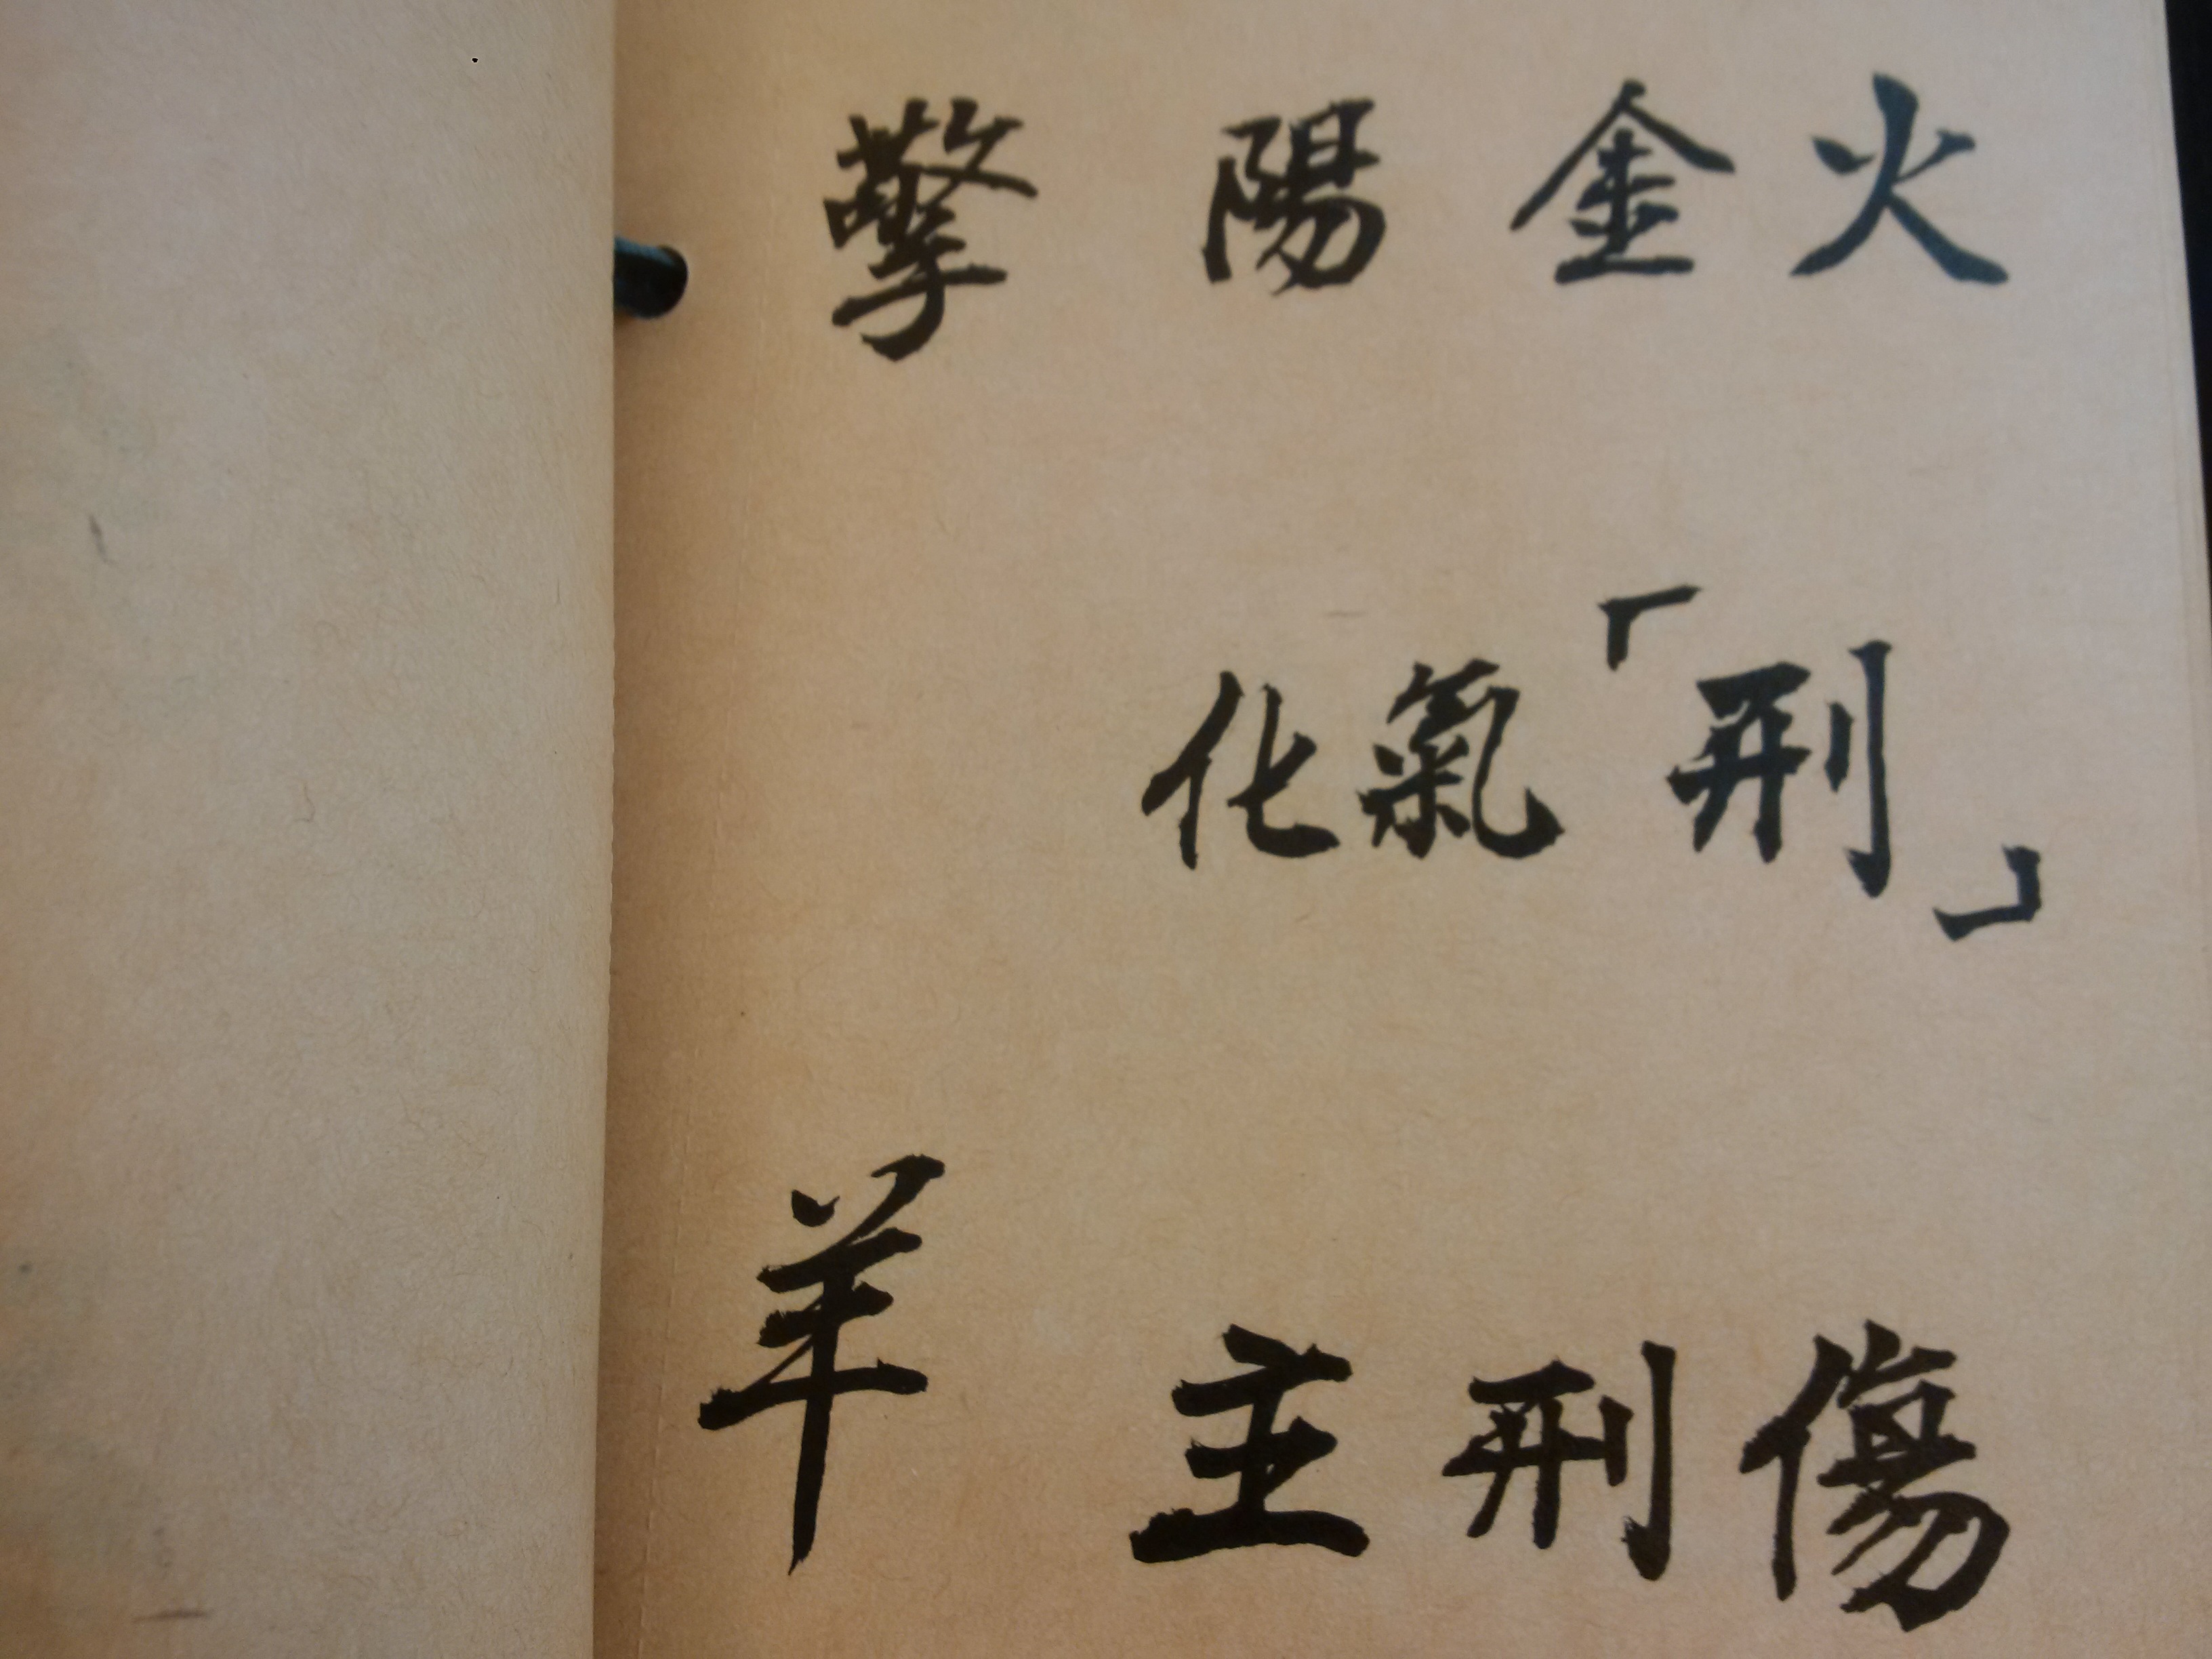 擎羊
陽金火
化氣「刑」
主刑傷